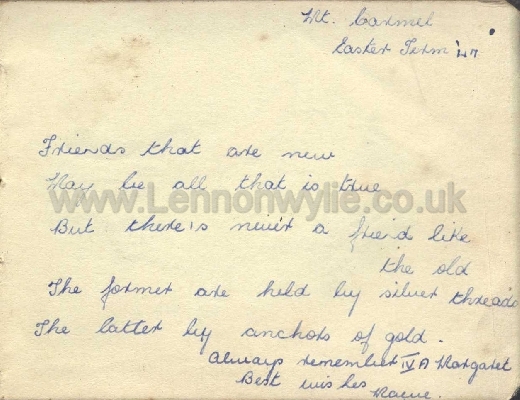 Mt. Carmel
Easter Term '47
Friends that are new
May be all that is true
www.Lennonwylie.co.uk
But there's never a friend like
the old
The former are held by silver threads
The latter by anchors of gold.
Always remember IV A Margaret
Best wishes